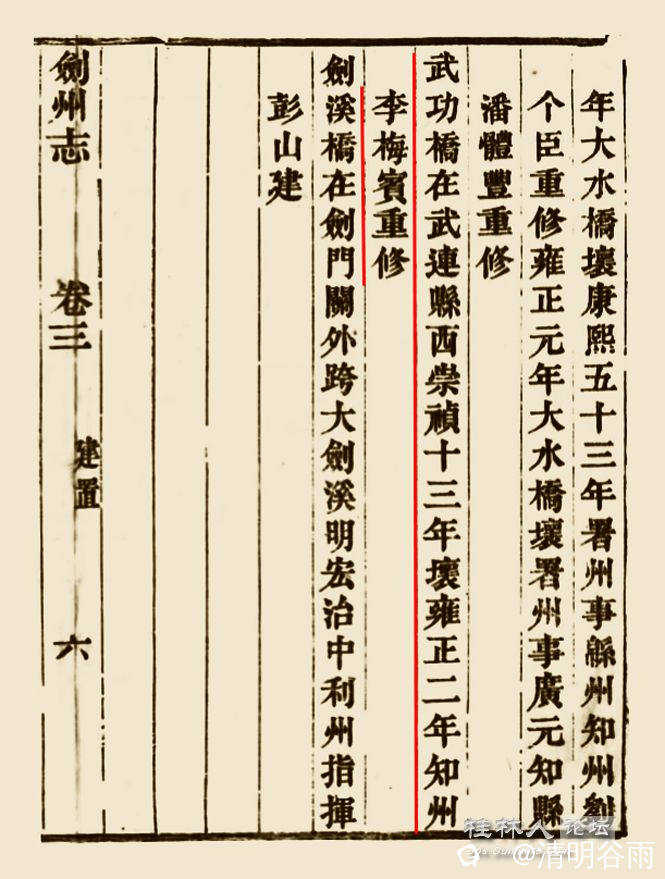 年大水橋壞康熙五十三年署州事緜州知州劉
个臣重修雍正元年大水橋壞署州事廣元知縣
潘體豐重修
武功橋在武連縣西崇禎十三年壞雍正二年知州
李梅賓重修
劍溪橋在劍門關外跨大劍溪明宏治中利州指揮
彭山建
劍州志 卷三 建置 六
桂林人论坛
@清明谷雨